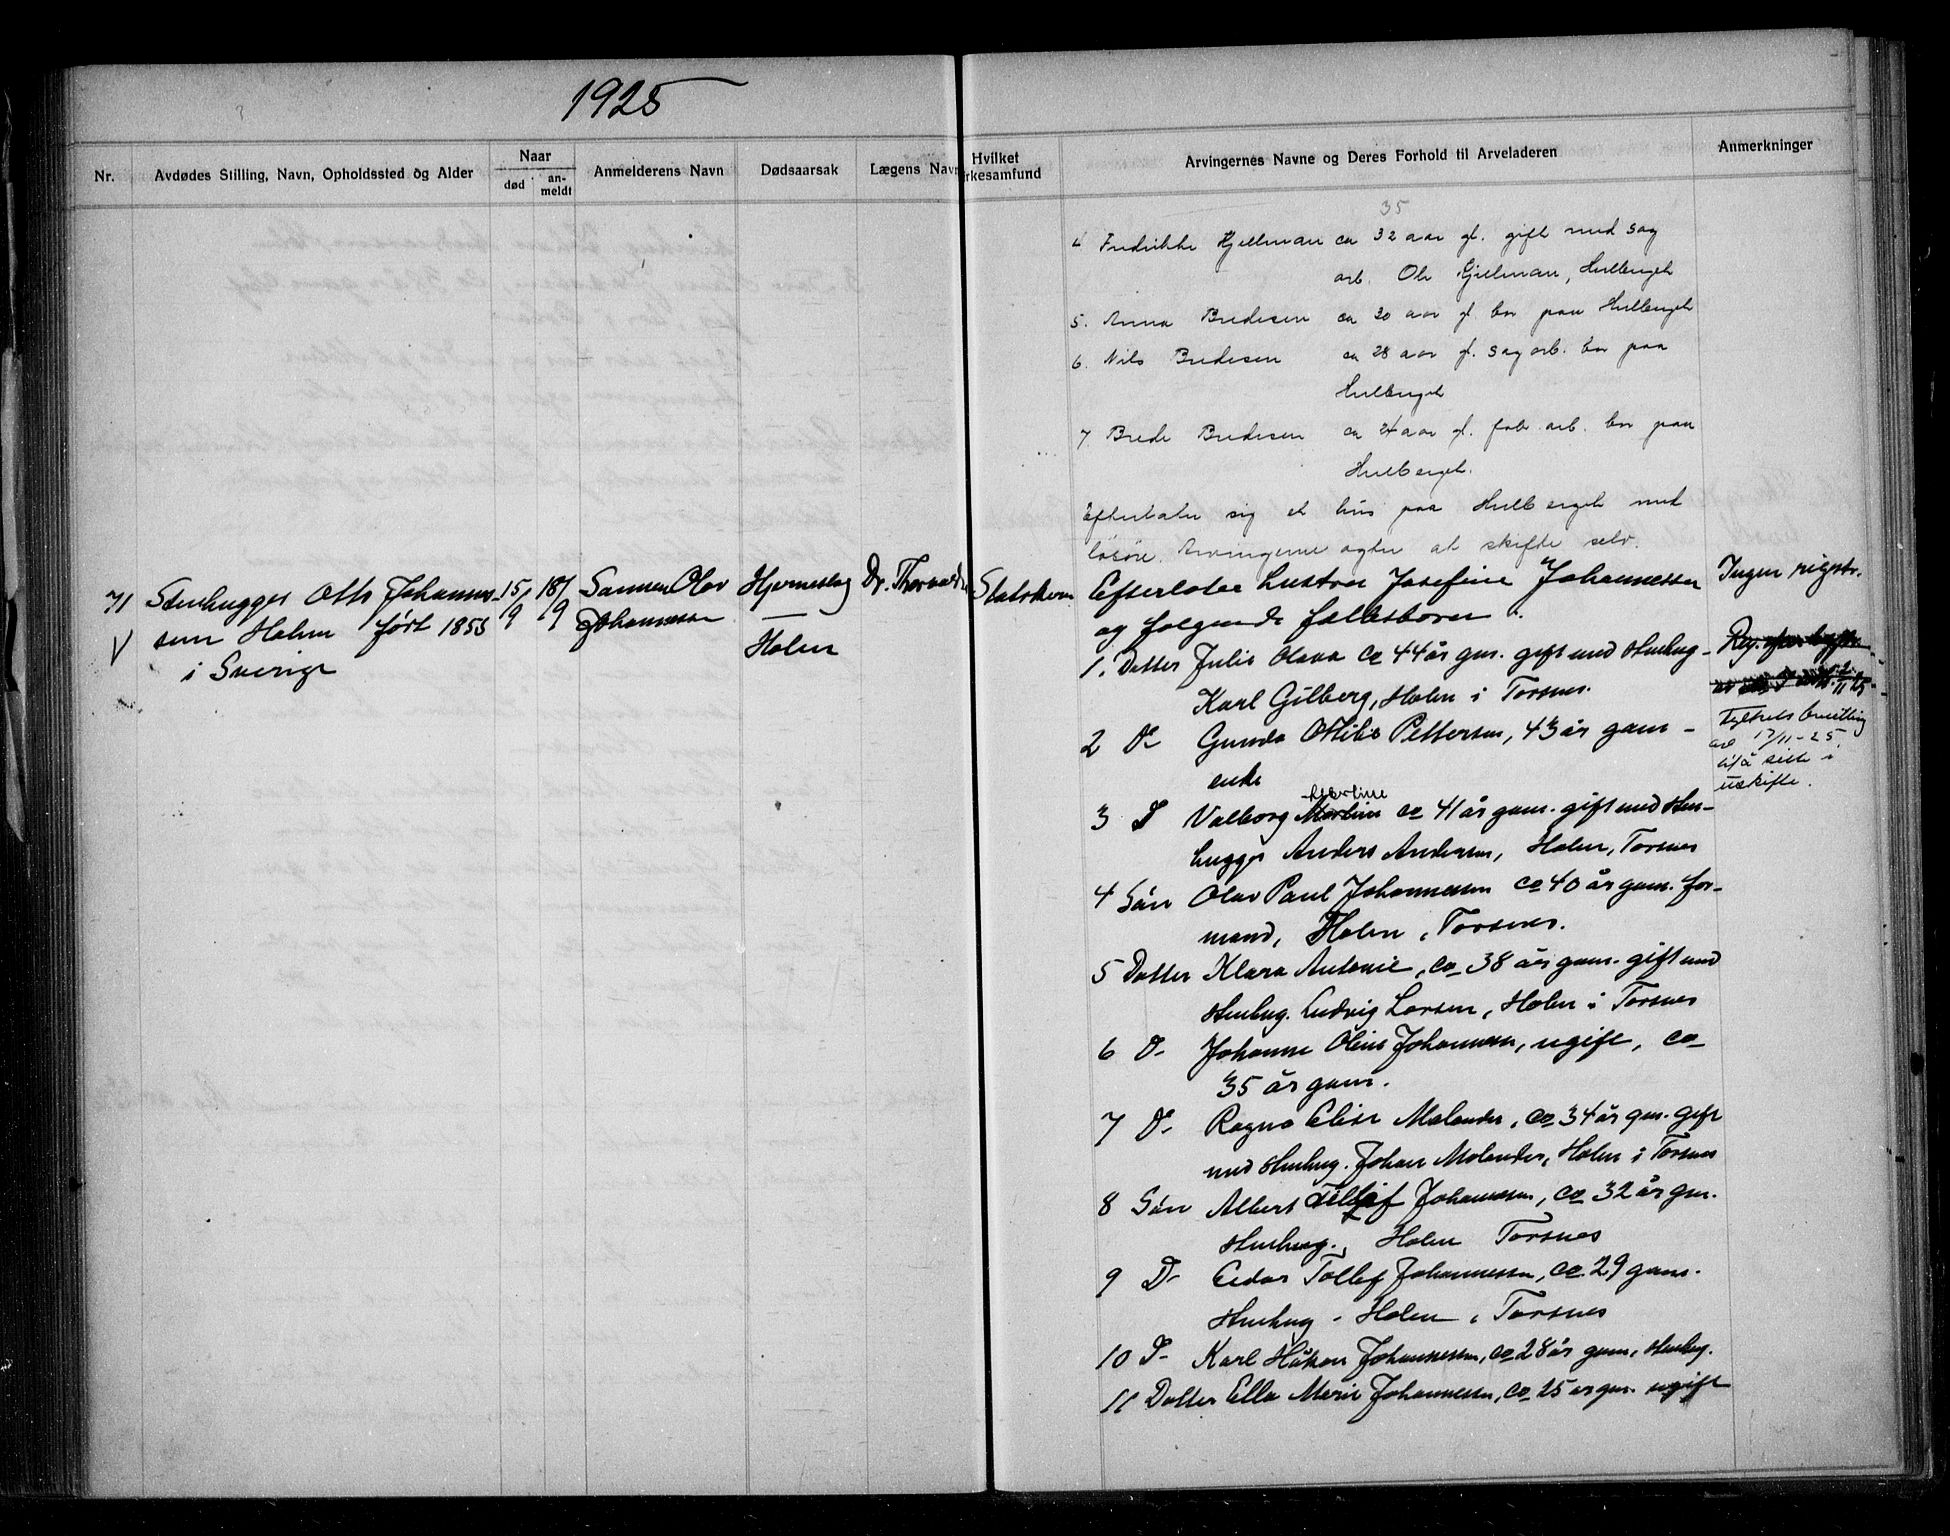 1925
Nr.
Avdødes Stilling, Navn, Opholdssted og Alder
Naar
død
an-
meldt
Anmelderens Navn
Dødsaarsak
Lægens Navn
Hvilket
rkesamfund
Arvingernes Navne og Deres Forhold til Arveladeren
Anmerkninger
35
4 Fredrikke Hjellman ca 32 aar gl. gift med sag
arb. Ole Gjellman, Hulberget
5. Anna Bredesen ca 30 aar gl. bor paa Hulberget
6. Nils Bredesen ca 28 aar gl. sagarb. bor paa
Hulberget
7 Brede Bredesen ca 24 aar gl. fab. arb. bor paa
Hulberget.
Efterlater sig et hus paa Hulberget med
løsøre. Arvingerne agter at skifte selv.
71
V
Stenhugger Otto Johannes-
sen Holm født 1855
i Sverige
15/
9
18/
9
Sønnen Olav
Johannessen
Hjerneslag
—
Holen
Dr. Thorvald
Statskirken
Efterlater hustru Josefine Johannessen
og følgende fællesbarn:
1. Datter Julie Olava ca 44 år gm. gift med stenhug-
Karl Gilberg, Holen i Torsnes.
2 D- Gunda Otilie Pettersen, 43 år gam-
enke
3 D Valborg Martine ca 41 år gam. gift med sten-
hugger Anders Andersen, Holen, Torsnes
4 Søn Olav Paul Johannessen ca 40 år gam. for-
mand, Holen i Torsnes.
5 Datter Klara Antonie, ca 38 år gam. gift med
stenhug. Ludvig Larsen, Holen i Torsnes
6 D- Johanne Oline Johannessen, ugift, ca
35 år gam.
7 D- Ragna Elise Molander, ca 34 år gm. gift
med stenhug. Johan Molander, Holen i Torsnes
8 Søn Albert Johannessen, ca 32 år gm.
stenhug., Holen Torsnes
9 D- Tollef Johannessen, ca. 29 gam.
stenhug - Holen i Torsnes
10 D- Karl Håkon Johannessen, ca 28 år gam, stenhug.
11 Datter Ella Marie Johannessen, ca 25 år gm. ugift
Ingen registr.
Fylkets bevilling
av 17/11-25
til å sitte i
uskifte.